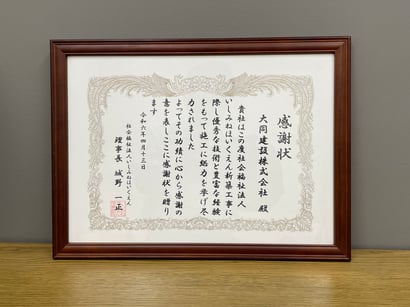 感謝状
大同建設株式会社 殿
貴社はこの度社会福祉法人
いしみねはいくえん新築工事に
際し優秀な技術と豊富な経験
をもって施工に総力を挙げ尽
力されました
よってその功績に心から感謝の
意を表しここに感謝状を贈り
ます
令和六年四月十三日
社会福祉法人いしみねはいくえん
理事長 城野 一正